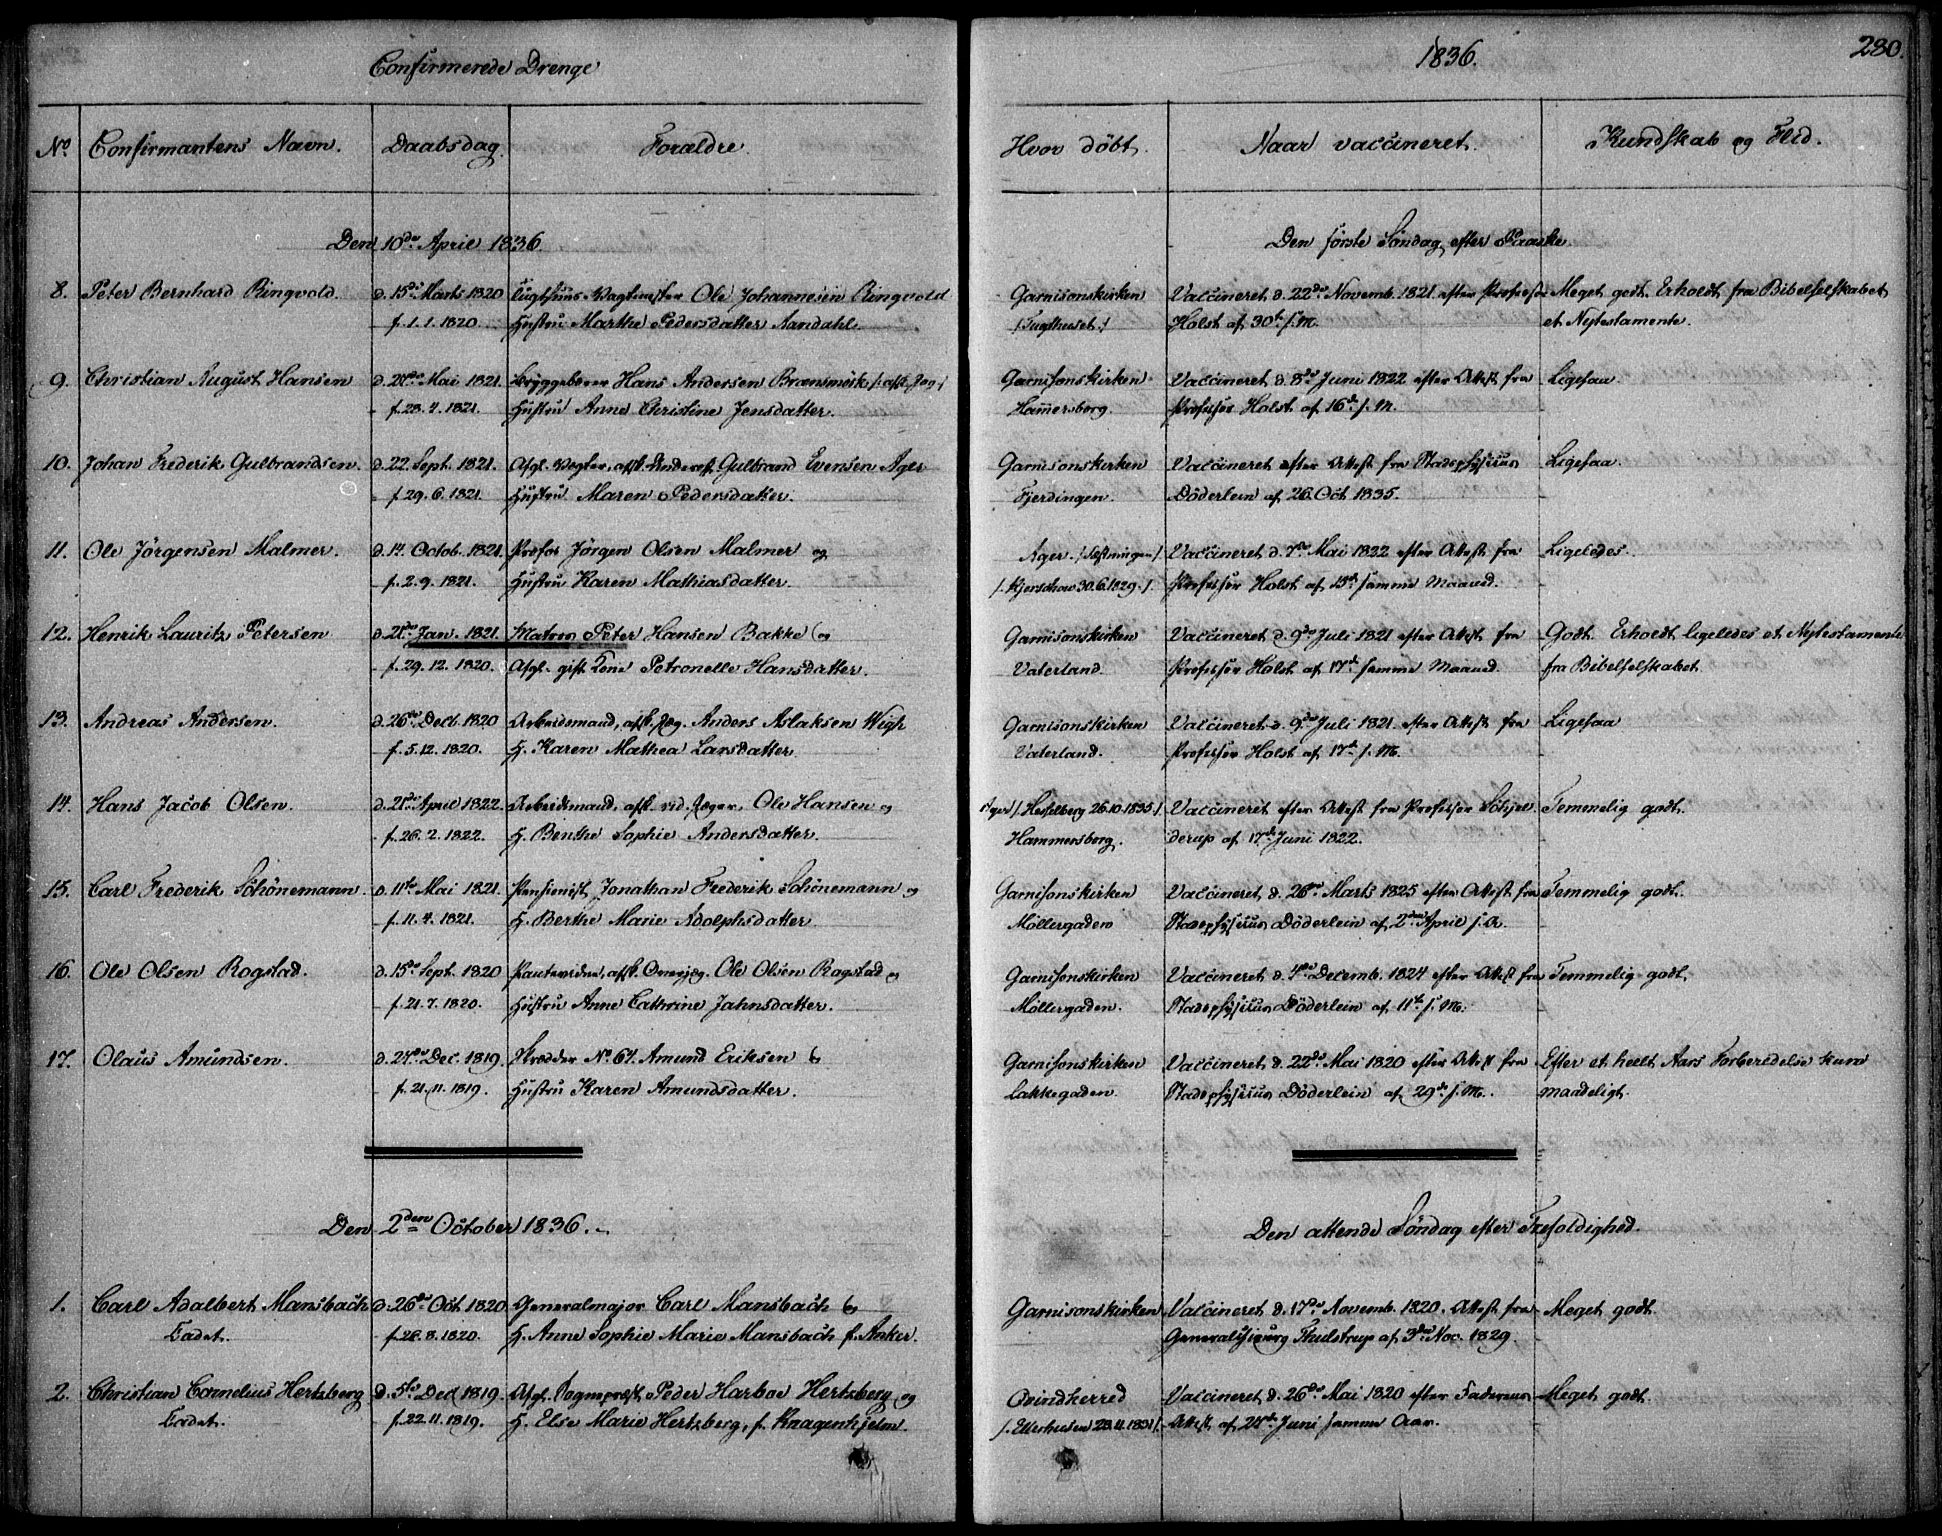 Confirmerede Drenge
1836.
280.
No. Confirmantens Navn. Daabsdag. Forældre. Hvor döbt. Naar vaccineret. Kundskab og Flid.
Den 10de April 1836. Den förste Söndag efter Paaske.
8. Peter Bernhard Ringvold. d. 15de Marts 1820 Tugthuus-Vagtmester Ole Johannesen Ringvold Garnisonskirken Vaccineret d. 22de Novemb. 1821 efter Professor Meget godt. Erholdt fra Bibelselskabet
f. 1. 1. 1820. Hustru Marthe Pedersdatter Aandahl. /Tugthuset/ Holst af 30te s. M. et Nytestamente.
9. Christian August Hansen d. Mai 1821. Bryggeborer Hans Andersen Garnisonskirken Vaccineret d. 8de Juni 1822 efter Attest fra Ligesaa.
f. 28. 4. 1821. Hustru Anne Christine Jensdatter. Hamersborg. Professor Holst af 16de s. M.
10. Johan Frederik Gulbrandsen. d. 22. Sept. 1821. Afg. Vægter, afsk. Gulbrand Evensen Ager Garnisonskirken Vaccineret efter Attest fra Stadsphysicus Ligesaa.
f. 29. 6. 1821. Hustru Maren Pedersdatter. Fjerdingen. Döderlein af 26. Oct 1835.
11. Ole Jörgensen Malmer. d. 14. Octob. 1821. Profos Jörgen Olsen Malmer og Ager. /Fæstningen/ Vaccineret d. 7de Mai 1822 efter Attest fra Ligeledes.
f. 2. 9. 1821. Hustru Karen Mathiasdatter. /. Kjerschow 30. 6. 1829. /. Professor Holst af 15de samme Maaned.
12. Henrik Lauritz Petersen d. 21de Jan. 1821. Matros Peter Hansen Bakke og Garnisonskirken Vaccineret d. 9de Juli 1821 efter Attest fra Godt. Erholdt ligeledes et Nytestamente
f. 29. 12. 1820. Afgl. gift Kone Petronelle Hansdatter. Vaterland. Professor Holst af 17de samme Maaned. fra Bibelselskabet
13. Andreas Andersen. d. 26de Decb. 1820 Arbeidsmand, afsk. Jæg. Anders Aslaksen Garnisonskirken Vaccineret d. 9de Juli 1821 efter Attest fra Ligesaa
f. 5. 12. 1820. H. Karen Mathea Larsdatter. Vaterland. Professor Holst af 17de s. M.
14. Hans Jacob Olsen. d. 21de April 1822. Arbeidsmand, afsk. rid. Jæger, Ole Hansen og Ager /. Hesselberg 26. 10. 1835 /. Vaccineret efter Attest fra Professor Temmelig godt.
f. 26. 2. 1822. H. Benthe Sophie Andersdatter. Hammersborg. derup af 17de Juni 1822.
15. Carl Frederik Schönemann. d. 11te Mai 1821. Pensionist Jonathan Frederik Schönemann og Garnisonskirken Vaccineret d. 26de Marts 1825 efter Attest fra Temmelig godt.
f. 11. 4. 1821. H. Berthe Marie Adolphsdatter. Möllergaden Stadsphysicus Döderlein af 2den April s. A.
16. Ole Olsen Rogstad. d. 15de Sept. 1820 afsk. Ole Olsen Rogstad og Garnisonskirken Vaccineret d. 4de Decemb. 1824 efter Attest fra Temmelig godt.
f. 21. 7. 1820. Hustru Anne Cathrine Jahnsdatter. Möllergaden. Stadsphysicus Döderlein af 11te s. M.
17. Olaus Amundsen. d. 27de Dec. 1819. Skrædder No. 64. Amund Eriksen & Garnisonskirken Vaccineret d. 22de Mai 1820 efter Attest fra Efter et heelt Aars Forberedelse kun
f. 21. 11. 1819. Hustru Karen Amundsdatter. Lakkegaden. Stadsphysicus Döderlein af 29de s. M. maadeligt.
Den 2den October 1836. Den attende Söndag efter Trefoldighed.
1. Carl Adalbert Mansbach d. 26de Oct. 1820 Generalmajor Carl Mansbach & Garnisonskirken Vaccineret d. 17de Novemb. 1820. Attest fra Meget godt.
Cadet. f. 26. 8. 1820. H. Anne Sophie Marie Mansbach f. Anker. Generalchirurg Thulstrup af 3de Nov. 1829.
2. Christian Cornelius Hertzberg d. 5te Dec 1819. Afgl. Sogneprest Peder Harboe Hertzberg og Qvindherred Vaccineret d. 26de Mai 1820 efter Faderens Meget godt.
Cadet. f. 22. 11. 1819. H. Else Marie Hertzberg, f. Knagenhjelm. Attest af 24de Juni samme Aar.